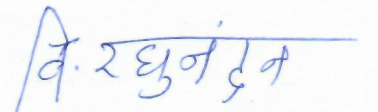 वि. रघुनंदन